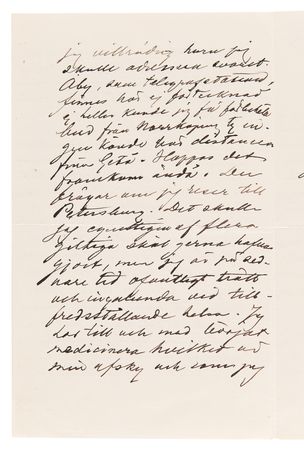 jag villrådig huru jag
skulle adressera svaret.
Åby, som telegrafstation,
finnes hos ej förtecknad
ej heller kunde jag få förbetala
bud från Norrköping, ty in-
gen kände hos distansen
från Geta. Hoppas det
framkom ändå. Du
frågar om jag reser till
Petersburg. Det skulle
jag egentligen af flera
giltiga skäl gerna hafva
gjort, men jag är på sed-
nare tid ofantligt trött
och ingalunda vid till-
fredsställande helsa. Jag
har till och med börjat
medicinera hvilket är
min afsky och som jag